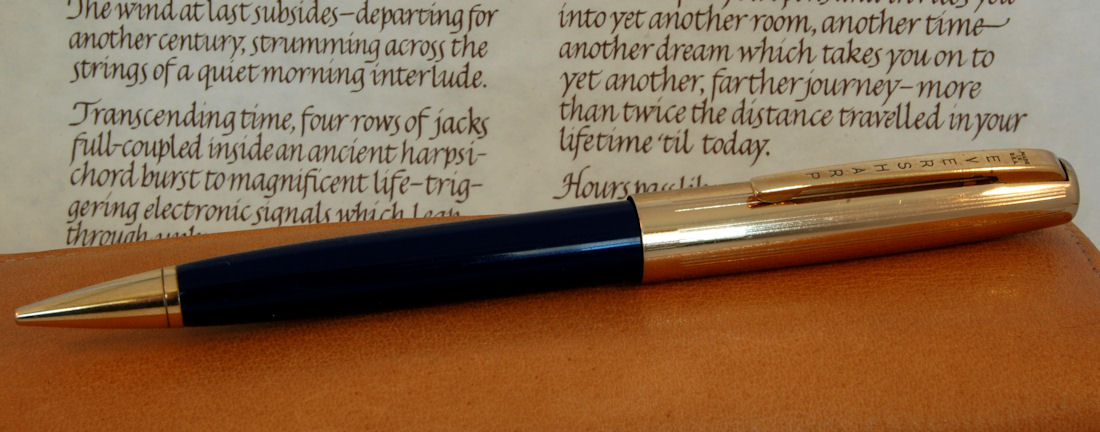 The wind at last subsides–departing for
another century, strumming across the
strings of a quiet morning interlude.
Transcending time, four rows of jacks
full-coupled inside an ancient harpsi-
chord burst to magnificent life–trig-
gering electronic signals which leap
through
into yet another room, another time–
another dream which takes you on to
yet another, farther journey–more
than twice the distance travelled in your
lifetime 'til today.
Hours pass
EVERSHARP
MADE IN U.S.A.